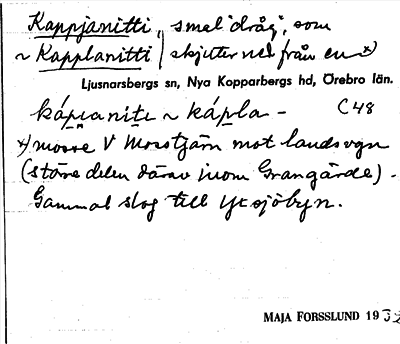 Kappjanitti, smal "dråg", som
~ Kapplanitti / skjuter ned från en x)
Ljusnarsbergs sn, Nya Kopparbergs hd, Örebro län.
kápianiti ~ kápla - C48
x) mosse V Mosstjärn mot landsvgn
(större delen därav inom Grangärde).
Gammal slog till Yxsjöbyn.
MAJA FORSSLUND 19